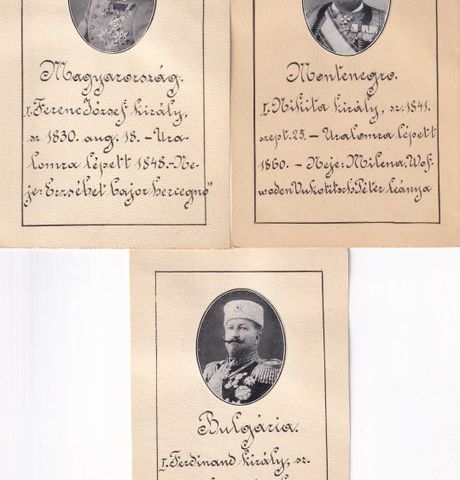 Magyarország.
I. Ferenc József király,
sz. 1830. aug. 18. – Ura-
lomra lépett 1848. – Ne-
je: Erzsébet bajor hercegnő
Montenegro.
I. Nikita király, sz. 1841.
szept. 25. – Uralomra lépett
1860. – Neje: Milena, Woj-
woden Vukotitsch Péter leánya
Bulgária.
I. Ferdinand király, sz.